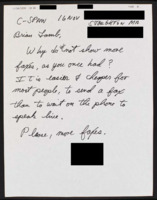 C-SPAN 16 NOV
Brian Lamb,
Why do not show more
faxes, as you once had?
It is easier & cheaper for
most people, to send a fax
than to wait on the phone to
speak live.
Please, more faxes.